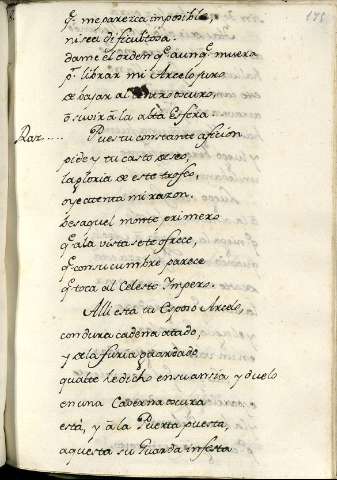 175
q.e me parezca imposible,
ni sea dificultosa.
dame el orden q.e aunq.e muera
p.r librar mi Arcelo juro
de bajar al centro oscuro,
o suvir à la alta Esfera.
Raz..... Pues tu constante aficion
pide y tu casto deseo,
la gloria de este trofeo,
oye attenta mi razon.
Desaquel monte primero
q.e à la vista se te ofrece,
q.e con su cumbre parece
q.e toca al Celeste Impero.
Alli està tu Esposo Arcelo,
con dura cadena attado,
y de la furia guardado
qual te he dicho en su ansia y duelo
en una Caverna oscura
està, y à la Puerta puesta,
aquesta su Guarda infesta